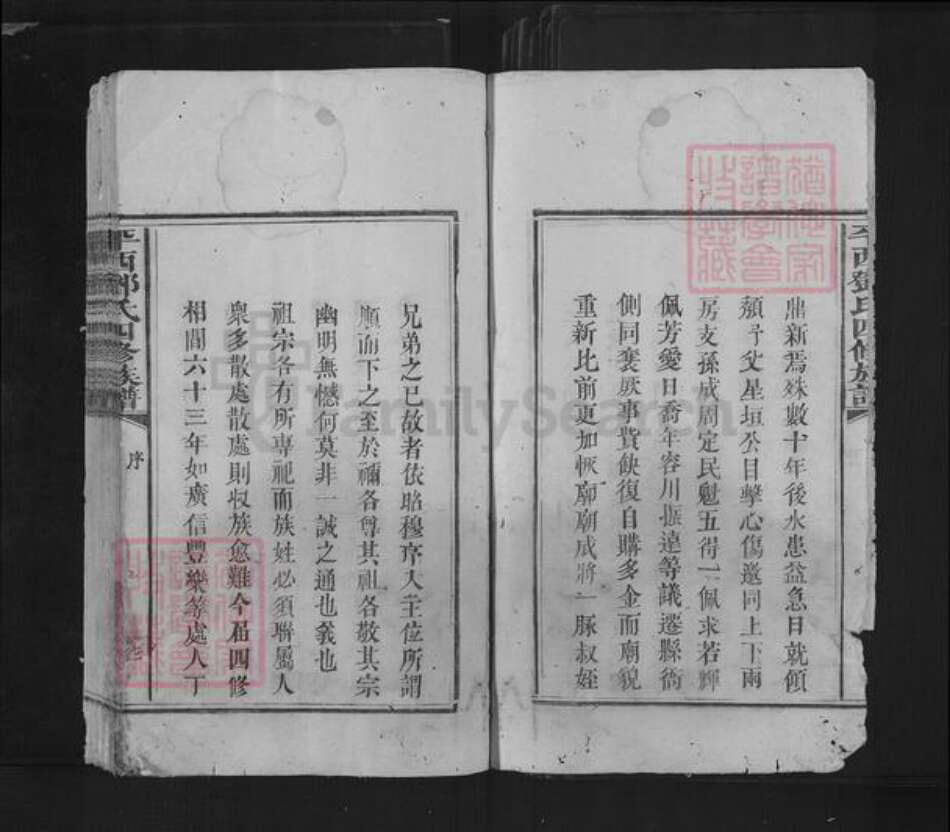 平西鄧氏四修族譜
鼎新焉殊數十年後水患益急日就傾
頽予父星垣公目擊心傷邀同上下兩
房支孫成周定民魁五得一佩求若輝
佩芳愛日喬年容川振遠等議遷縣衙
側同襄厥事費缺復自購多金而廟貌
重新比前更加恢廓廟成將一脉叔姪
兄弟之已故者依昭穆序入主位所謂
順而下之至於禰各尊其祖各敬其宗
幽明無憾何莫非一誠之通也義也
祖宗各有所専祀而族姓必須聯屬人
衆多散處散處則收族愈難今届四修
相間六十三年如廣信豐樂等處人丁
平西鄧氏四修族譜
序
FamilySearch